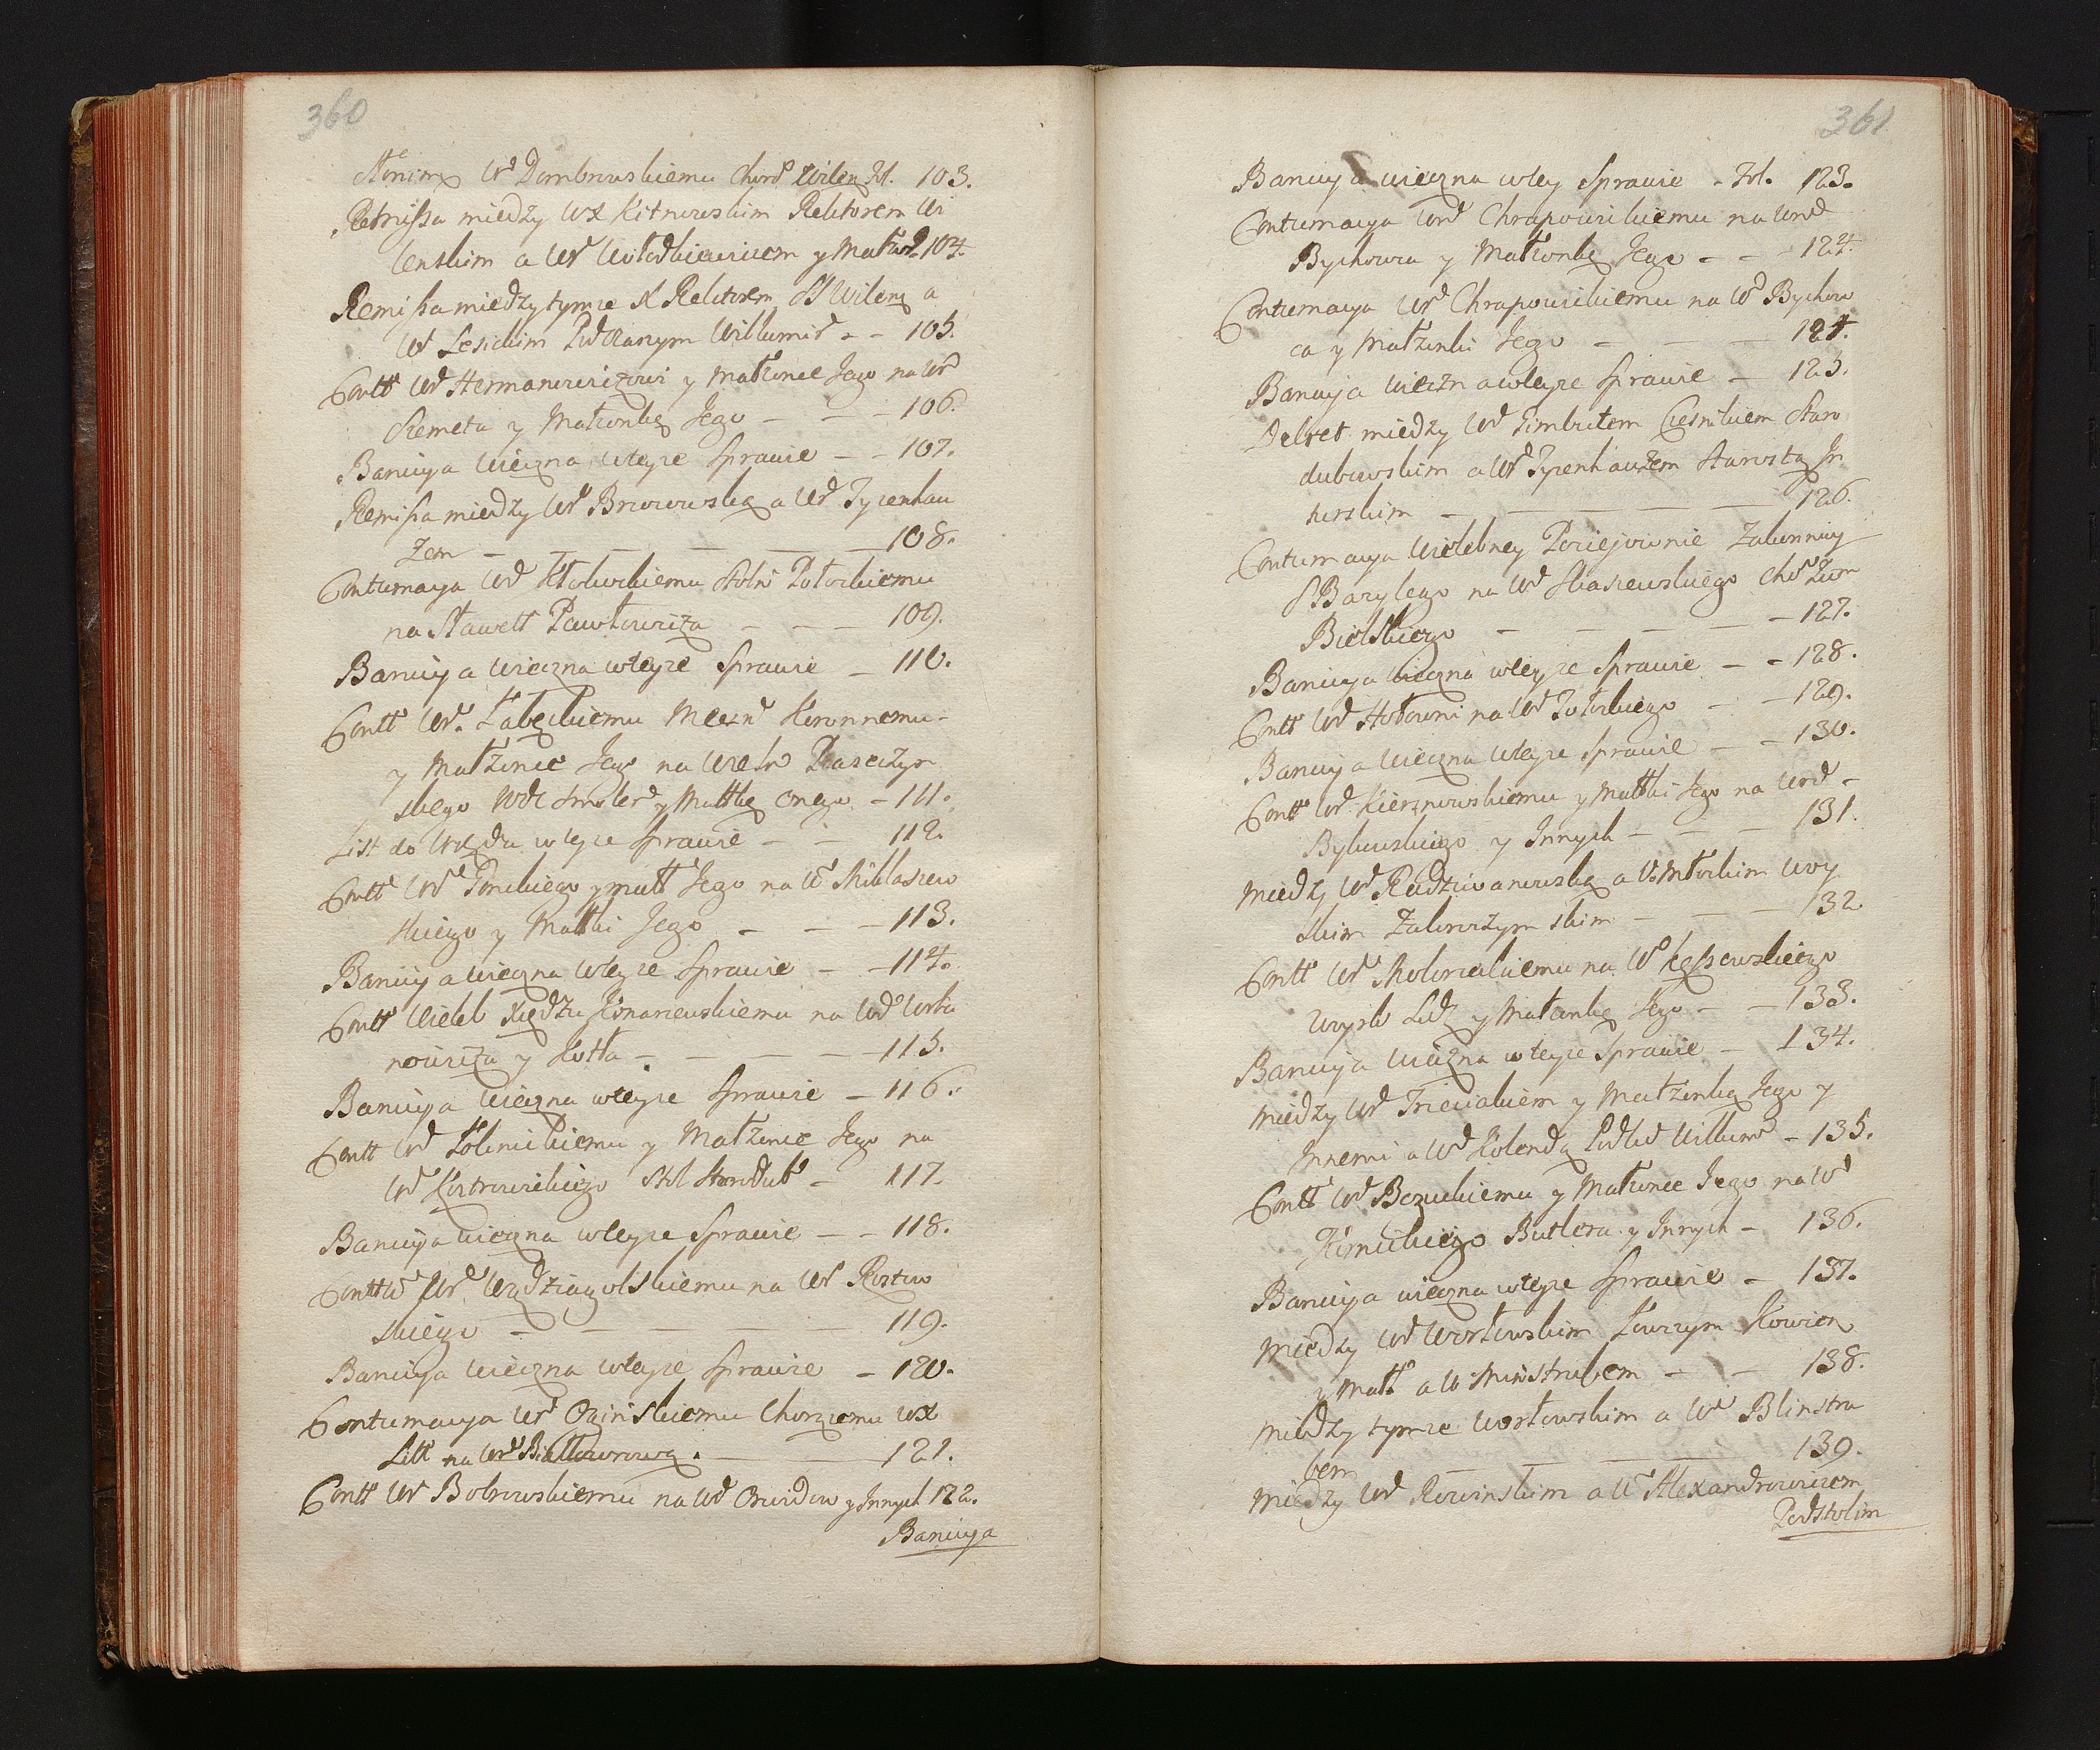 360
Wd Dombrowskiemu Chord Wilen fol. 103.
Remissa miedzy WX Kitnowskim Rektorem Wi
lenskim a Wd Wołodkiewiczem y Małżo 104.
Remissa miedzy tymze X Rektorem Wilenz a
Wd Lesickim Willkumird - - 105.
Contt Wd Hermanowiczowi y małżonce Jego na Wd
Remeta y Malzonkę Jego - - - 106.
Bannyja wieczna w teyze sprawie - - 107.
Remissa miedzy Wd Brzozowską a Wd Tyzenhau
zem - - - - - 108.
Contumacya Wd Kłokockiemu Stolni Połockiemu
na Sławett Pawłowicza - - - 109.
Bannicya wieczna w teyze Sprawie - 110.
Contt Wd. Łabęckiemu Mieczn Koronnemu -
y Małżonce Jego na Piaseczyn
skiego Wdc Smoler y Matkę onego - 111.
List do Urzędu w teyze sprawie - - 112.
Contt Wd Ponckiego y matt Jego na Wd Mikłaszew
skiego y Matki Jego - - - 113.
Bannicya wieczna w teyze Sprawie - - 114.
Contt Wieleb Xiędzu Konarzewskiemu na Wd Wołu
nowicza y Kotła - - - - - 115.
Bannicya wieczna w teyze Sprawie - 116.
Contt Wd Łobinickiemu y Małżonce Jego na
Wd Kostrowickiego Stol Starodub - 117.
Bannicya wieczna w teyze Sprawie - - 118.
Contt Wd Wędziagolskiemu na Wd Roztwo
skiego - - - - 119.
Bannicya wieczna w teyze Sprawie - 120.
Contumacya Wd Oginskiemu Chorzemu WX
Litt na Wd Białłozorową. - - 121.
Contt Wd Bobrowskiemu na Wd Orwidow y Innych 122.
Bannicya
361
Bannicya wieczna w tey Sprawie - fol. 123.
Contumacya Wd Chrapowickiemu na Wd
Bychowca y Małżonkę Jego - - - 124.
Contumacya Wd Chrapowickiemu na Wd Bychow
ca y Małżonki Jego - - - 124.
Bannicya wieczna w teyze Sprawie - 125.
Dekret miedzy Wd Gimbutem Cześnikiem Staro
dubowskim a Wd Tyzenhauzem Starostą In
turskim - - - - - 126.
Contumacya Wielebney Pociejownie Zakonnicy
S Bazylego na Wd Chor Ziem
Bielskiego - - - - - 127.
Bannicya wieczna w teyze Sprawie - - 128.
Contt Wd Hołowni na Wd Połockiego - - 129.
Bannicya wieczna w teyze Sprawie - - 130.
Contt Wd Kiersnowskiemu y Matki Jego na Wd -
Bykowskiego y Innych - - - 131.
Miedzy Wd Radziwanowską a Wd Młockim Woy
skim Zakroczymskim - - - 132
Contt Wd na Wd Kęszewskiego
Woysk Lidz y Małżonkę Jego - - 133.
Bannicya wieczna w teyze Sprawie - 134.
Miedzy Wd Trzeciakiem y Małżonką Jego y
Innemi a Wd Kolendą Willkumd - 135.
Contt Wd Bczuckiemu y Małżonce Jego na Wd
Butlera y Innych - 136.
Bannicya wieczna w teyze Sprawie - 137.
Miedzy Wd Worłowskim Łowczym Kowien
y Matt a W Minstrubem - - 138.
Miedzy tymze Worłowskim a Wd Blinstru
bem - - - 139.
Miedzy Wd Rowinskim a Wd Alexandrowiczem
Podstolim